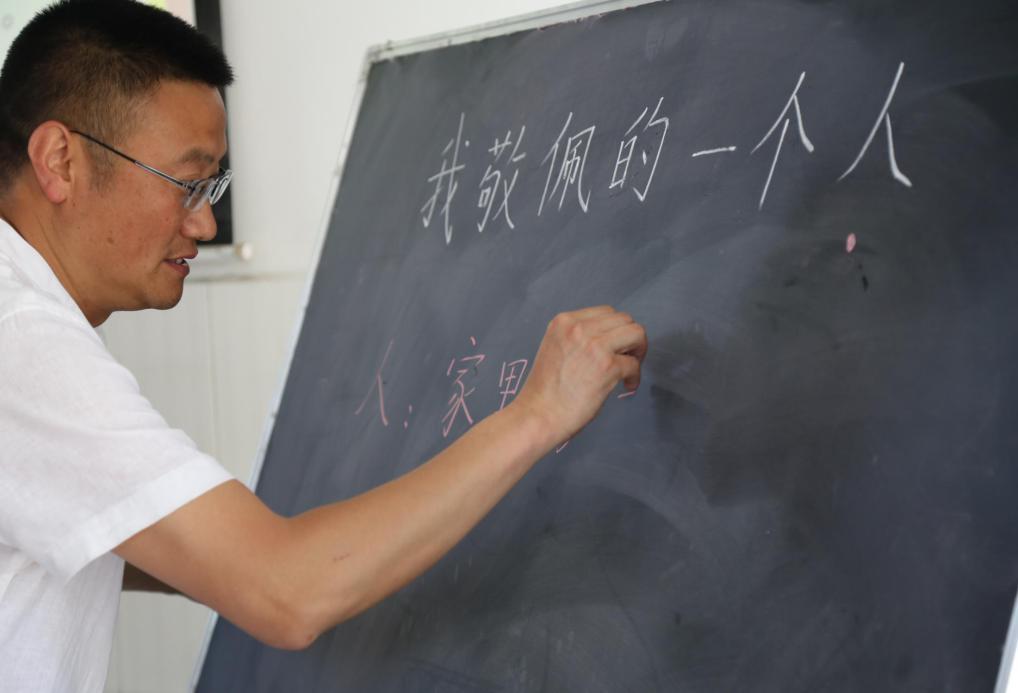 我敬佩的一个人
人:家里